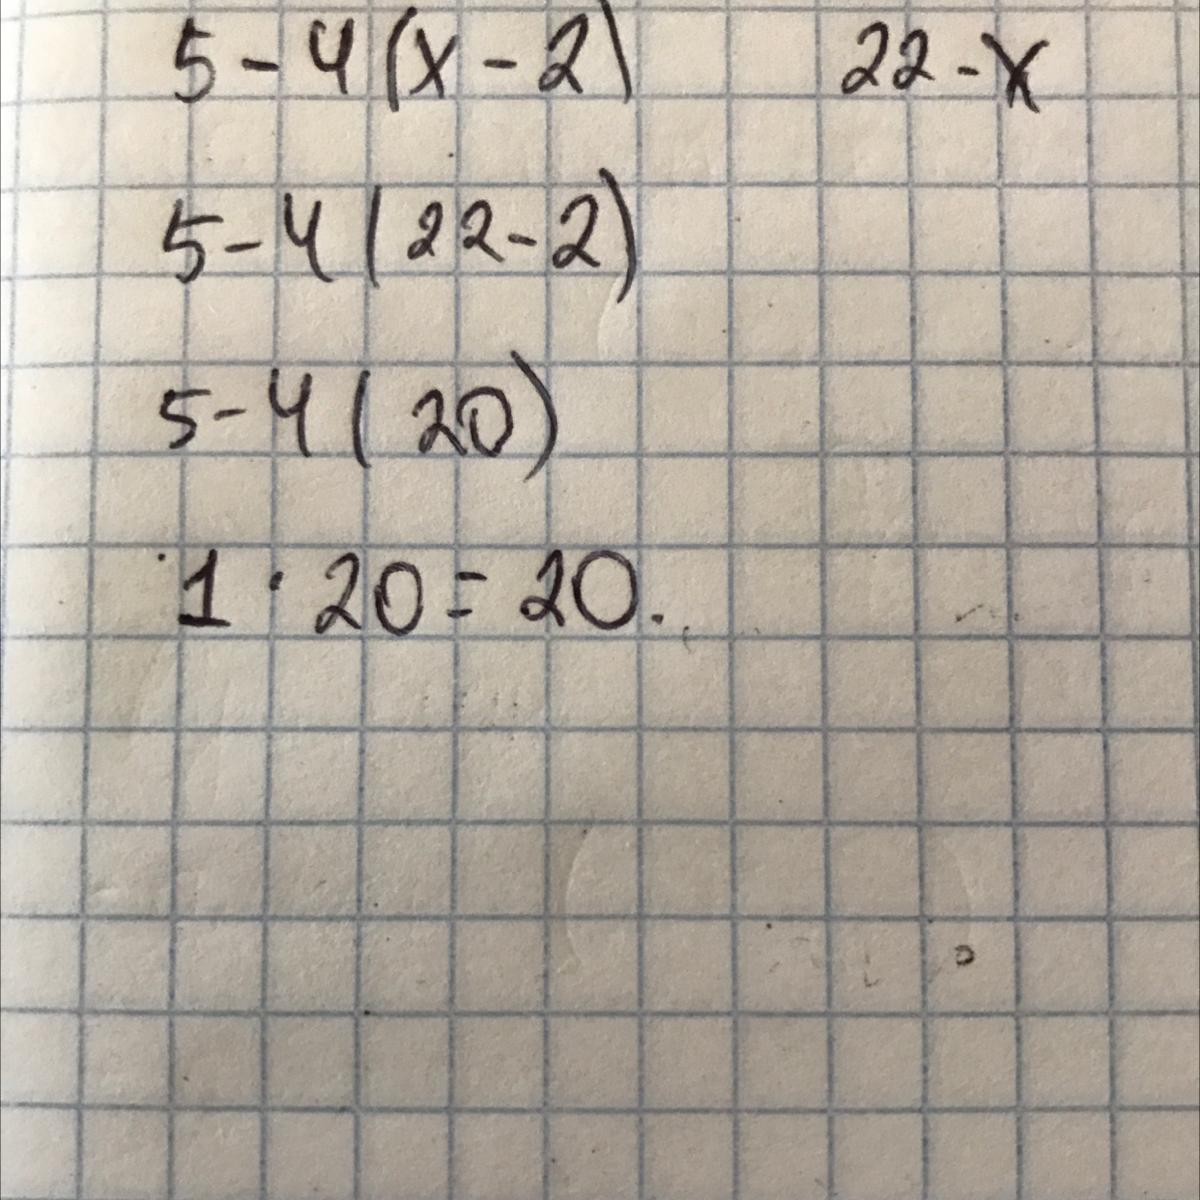 5 - 4 (x - 2) 22 - x
5 - 4 ( 22 - 2)
5 - 4 ( 20)
1 · 20 = 20.